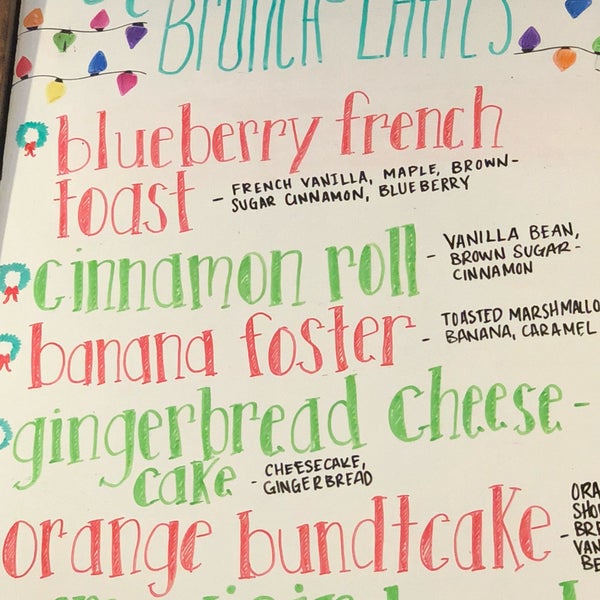 BRUNCH LATTES
blueberry french
toast - FRENCH VANILLA, MAPLE, BROWN-
SUGAR CINNAMON, BLUEBERRY
cinnamon roll - VANILLA BEAN,
BROWN SUGAR-
CINNAMON
banana foster - TOASTED MARSHMALLO
BANANA, CARAMEL
gingerbread cheese-
cake - CHEESECAKE,
GINGERBREAD
orange bundtcake - ORA
SHO
BRE
VAN
BE